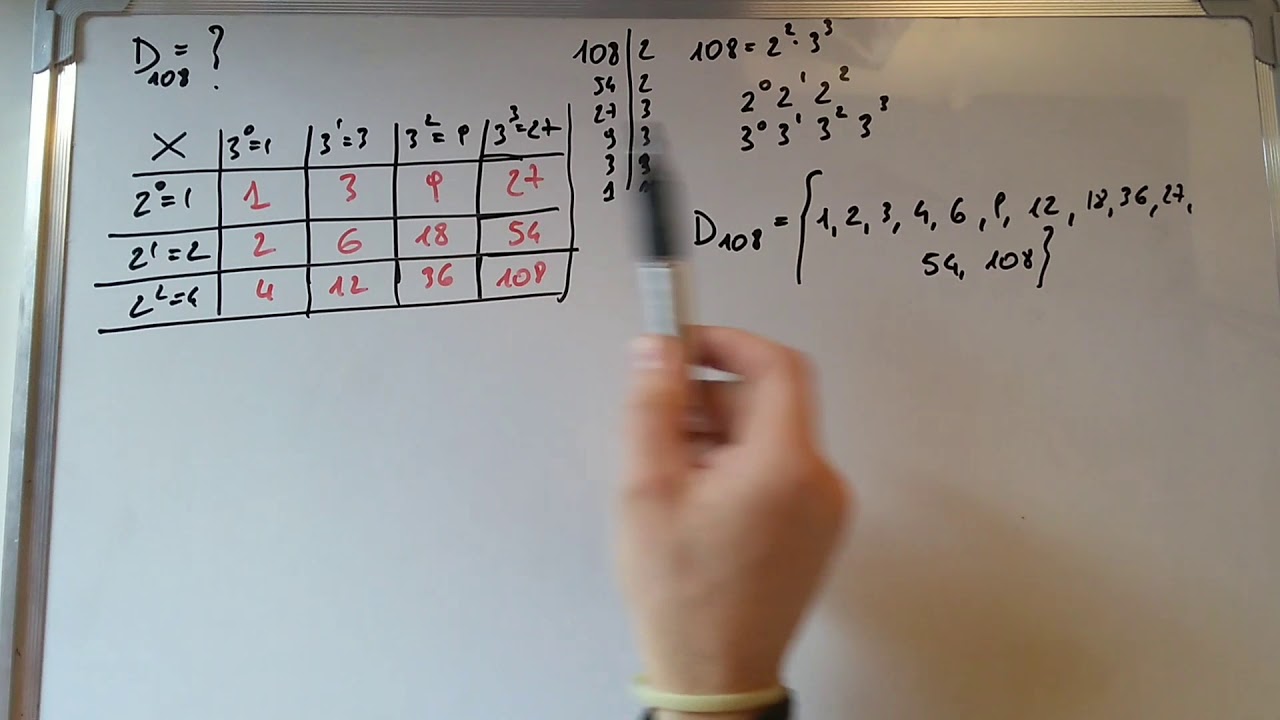 D₁₀₈ = ?
X | 3⁰=1 | 3¹=3 | 3²=9 | 3³=27
2⁰=1 | 1 | 3 | 9 | 27
2¹=2 | 2 | 6 | 18 | 54
2²=4 | 4 | 12 | 36 | 108
108 | 2
54 | 2
27 | 3
9 | 3
3 |
1 |
108 = 2² · 3³
2⁰ 2¹ 2²
3⁰ 3¹ 3² 3³
D₁₀₈ = {1, 2, 3, 4, 6, 9, 12, 18, 36, 27,
54, 108}